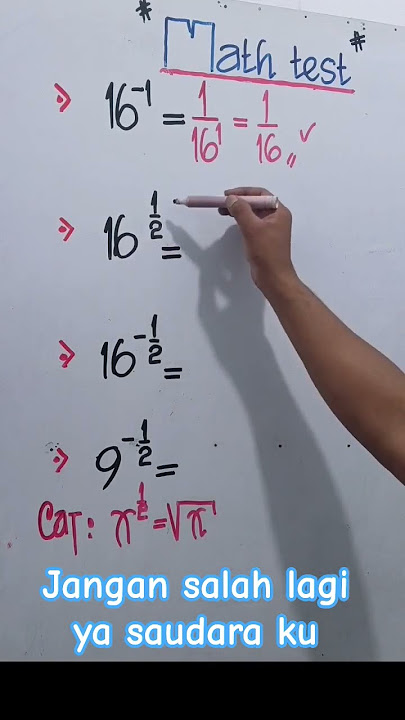 * Math test *
→ 16⁻¹ = 1/16¹ = 1/16 ,, ✓
→ 16^(1/2) =
→ 16^(-1/2) =
→ 9^(-1/2) =
CaT : x^(1/2) = √x
Jangan salah lagi
ya saudara ku